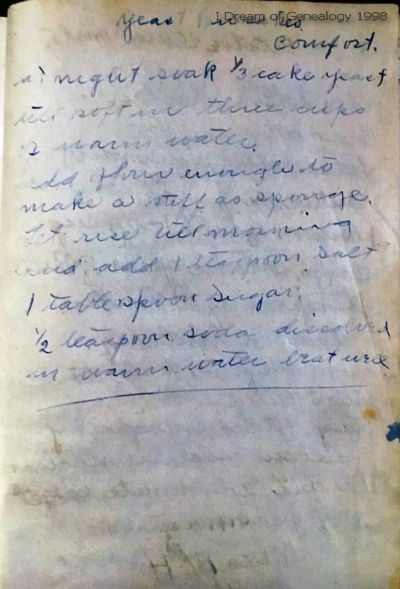 I Dream of Genealogy 1998
yeast
comfort.
at night soak 1/3 cake yeast
till soft in three cups
warm water.
add flour enough to
make a stiff as sponge.
Let rise till morning
and add 1 teaspoon salt
1 tablespoon sugar.
1/2 teaspoon soda dissolved
in warm water beat well